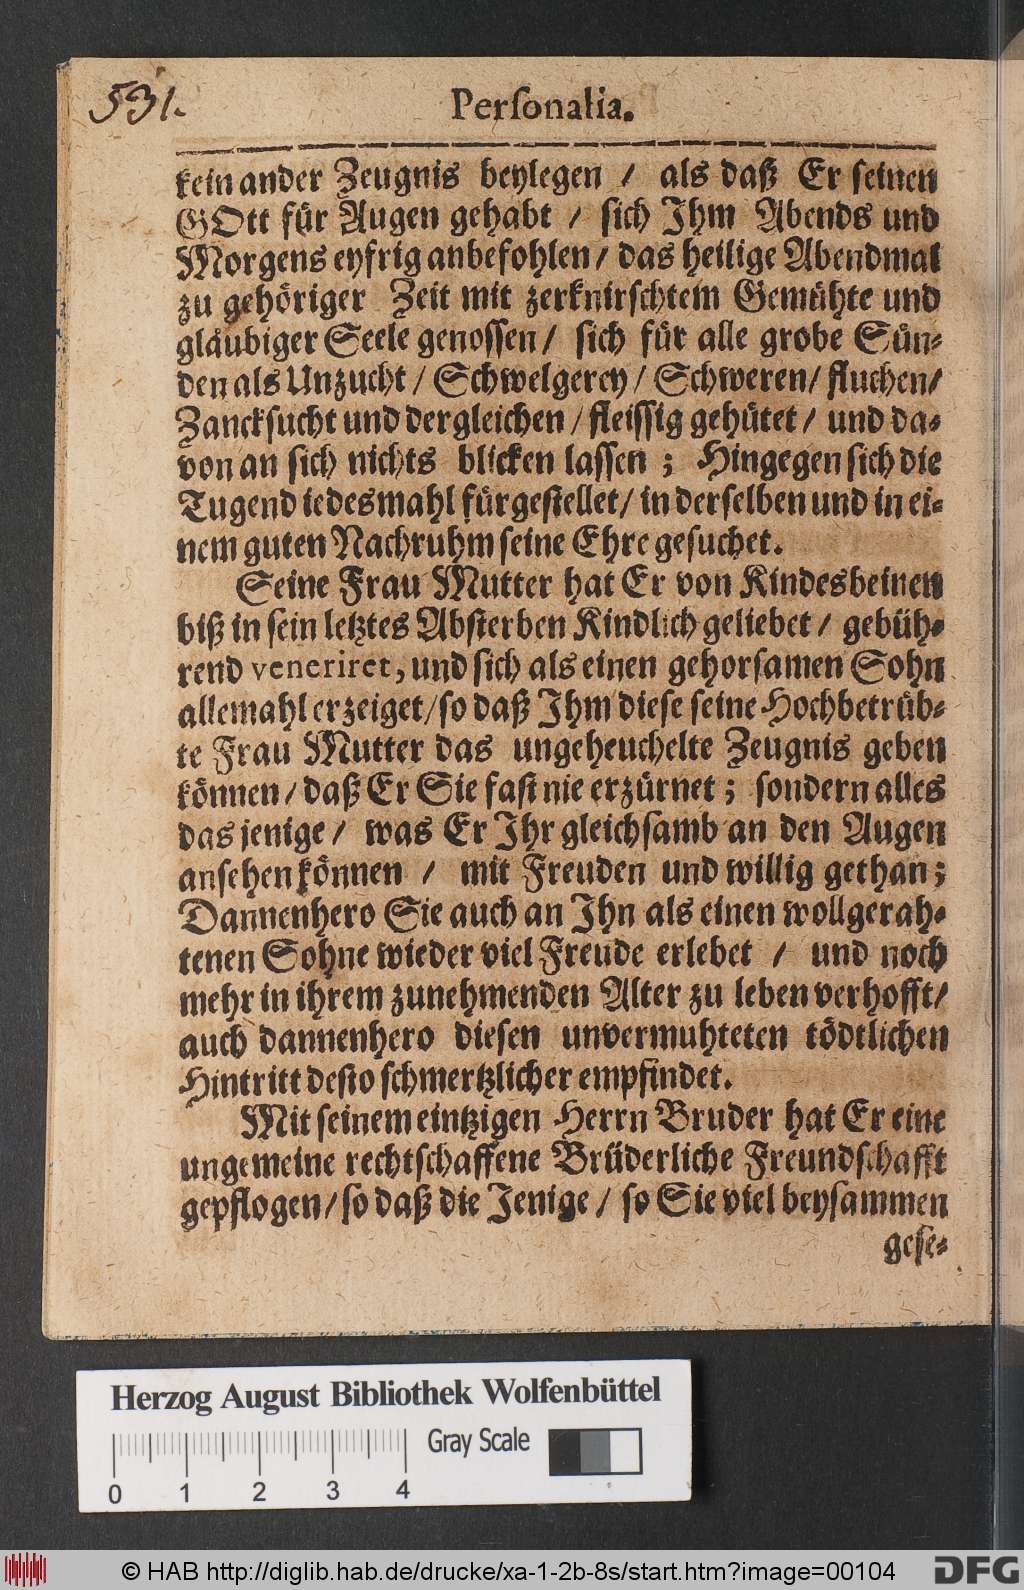 531.
Personalia.
kein ander Zeugnis beylegen / als daß Er seinen
GOtt für Augen gehabt / sich Ihm Abends und
Morgens eyfrig anbefohlen / das heilige Abendmal
zu gehöriger Zeit mit zerknirschtem Gemühte und
gläubiger Seele genossen / sich für alle grobe Sün-
den als Unzucht / Schwelgerey / Schweren / fluchen /
Zancksucht und dergleichen / fleissig gehütet / und da-
von an sich nichts blicken lassen ; Hingegen sich die
Tugend iedesmahl fürgestellet / in derselben und in ei-
nem guten Nachruhm seine Ehre gesuchet.
Seine Frau Mutter hat Er von Kindesbeinen
biß in sein letztes Absterben Kindlich geliebet / gebüh-
rend veneriret, und sich als einen gehorsamen Sohn
allemahl erzeiget / so daß Ihm diese seine Hochbetrüb-
te Frau Mutter das ungeheuchelte Zeugnis geben
können / daß Er Sie fast nie erzürnet ; sondern alles
das jenige / was Er Ihr gleichsamb an den Augen
ansehen können / mit Freuden und willig gethan ;
Dannenhero Sie auch an Ihn als einen wollgerah-
tenen Sohne wieder viel Freude erlebet / und noch
mehr in ihrem zunehmenden Alter zu leben verhofft /
auch dannenhero diesen unvermuhteten tödtlichen
Hintritt desto schmertzlicher empfindet.
Mit seinem eintzigen Herrn Bruder hat Er eine
ungemeine rechtschaffene Brüderliche Freundschafft
gepflogen / so daß die Jenige / so Sie viel beysammen
gese-
Herzog August Bibliothek Wolfenbüttel
Gray Scale
0 1 2 3 4
© HAB http://diglib.hab.de/drucke/xa-1-2b-8s/start.htm?image=00104
DFG